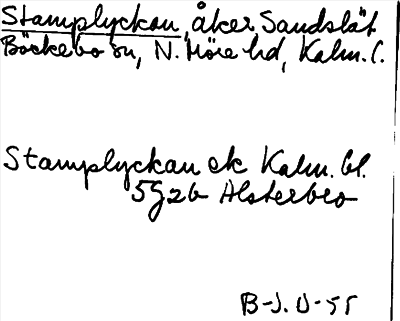 Stamplyckan, åker Sandslät
Böckebo sn, N. Möre hd, Kalm. l.
Stamplyckan ek Kalm. bl.
5G2b Alsterbro
B-J. U-55